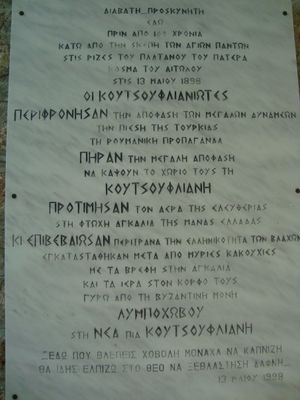 ΔΙΑΒΑΤΗ_ΠΡΟΣΚΥΝΗΤΗ
ΕΔΩ
ΠΡΙΝ ΑΠΟ 100 ΧΡΟΝΙΑ
ΚΑΤΩ ΑΠΟ ΤΗΝ ΣΚΕΠΗ ΤΩΝ ΑΓΙΩΝ ΠΑΝΤΩΝ
ΣΤΙΣ ΡΙΖΕΣ ΤΟΥ ΠΛΑΤΑΝΟΥ ΤΟΥ ΠΑΤΕΡΑ
ΚΟΣΜΑ ΤΟΥ ΑΙΤΩΛΟΥ
ΣΤΙΣ 13 ΜΑΙΟΥ 1898
ΟΙ ΚΟΥΤΣΟΥΦΛΙΑΝΙΩΤΕΣ
ΠΕΡΙΦΡΟΝΗΣΑΝ ΤΗΝ ΑΠΟΦΑΣΗ ΤΩΝ ΜΕΓΑΛΩΝ ΔΥΝΑΜΕΩΝ
ΤΗΝ ΠΙΕΣΗ ΤΗΣ ΤΟΥΡΚΙΑΣ
ΤΗ ΡΟΥΜΑΝΙΚΗ ΠΡΟΠΑΓΑΝΔΑ
ΠΗΡΑΝ ΤΗΝ ΜΕΓΑΛΗ ΑΠΟΦΑΣΗ
ΝΑ ΚΑΨΟΥΝ ΤΟ ΧΩΡΙΟ ΤΟΥΣ ΤΗ
ΚΟΥΤΣΟΥΦΛΙΑΝΗ
ΠΡΟΤΙΜΗΣΑΝ ΤΟΝ ΑΕΡΑ ΤΗΣ ΕΛΕΥΘΕΡΙΑΣ
ΣΤΗ ΦΤΩΧΗ ΑΓΚΑΛΙΑ ΤΗΣ ΜΑΝΑΣ ΕΛΛΑΔΑΣ
ΚΙ ΕΠΙΒΕΒΑΙΩΣΑΝ ΠΕΡΙΤΡΑΝΑ ΤΗΝ ΕΛΛΗΝΙΚΟΤΗΤΑ ΤΩΝ ΒΛΑΧΩΝ
ΕΓΚΑΤΑΣΤΑΘΗΚΑΝ ΜΕΤΑ ΑΠΟ ΜΥΡΙΕΣ ΚΑΚΟΥΧΙΕΣ
ΜΕ ΤΑ ΒΡΕΦΗ ΣΤΗΝ ΑΓΚΑΛΙΑ
ΚΑΙ ΤΑ ΙΕΡΑ ΣΤΟΝ ΚΟΡΦΟ ΤΟΥΣ
ΓΥΡΩ ΑΠΟ ΤΗ ΒΥΖΑΝΤΙΝΗ ΜΟΝΗ
ΛΥΜΠΟΧΩΒΟΥ
ΣΤΗ ΝΕΑ ΠΙΑ ΚΟΥΤΣΟΥΦΛΙΑΝΗ
_ΞΕΔΩ ΠΟΥ ΒΛΕΠΕΙΣ ΧΟΒΟΛΗ ΜΟΝΑΧΑ ΝΑ ΚΑΠΝΙΖΗ
ΘΑ ΙΔΗΣ ΕΛΠΙΖΩ ΣΤΟ ΘΕΟ ΝΑ ΞΕΒΛΑΣΤΗΣΗ ΔΑΦΝΗ_
13 ΜΑΙΟΥ 1998